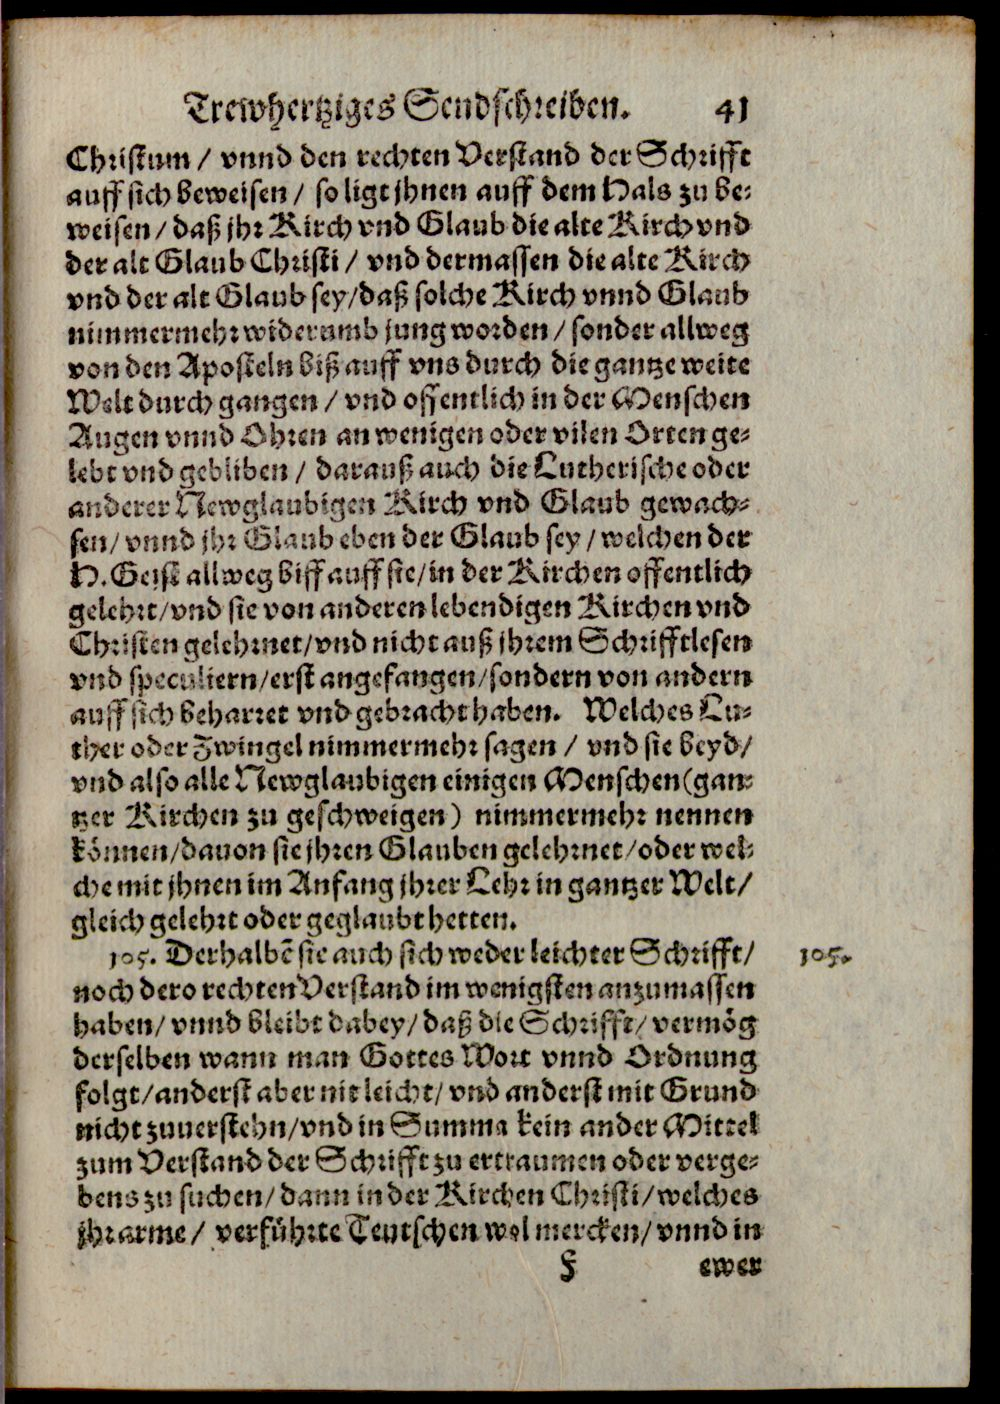 Trewhertziges Sendschreiben. 41
Christum / vnnd den rechten Verstand der Schrifft
auff sich beweisen / so ligt jhnen auff dem Hals zu be-
weisen / daß jhr Kirch vnd Glaub die alte Kirch vnd
der alt Glaub Christi / vnd dermassen die alte Kirch
vnd der alt Glaub sey/daß solche Kirch vnnd Glaub
nimmermehr widerumb jung worden / sonder allweg
von den Aposteln biß auff vns durch die gantze weite
Welt durch gangen / vnd offentlich in der Menschen
Augen vnnd Ohren an wenigen oder vilen Orten ge-
lebt vnd gebliben / darauß auch die Lutherische oder
anderer Newglaubigen Kirch vnd Glaub gewach-
sen/ vnnd jhr Glaub eben der Glaub sey / welchen der
H. Geist allweg biff auff sie/in der Kirchen offentlich
gelehrt/vnd sie von anderen lebendigen Kirchen vnd
Christen gelehrnet/vnd nicht auß jhrem Schrifftlesen
vnd speculiern/erst angefangen/sondern von andern
auff sich beharret vnd gebracht haben. Welches Lu-
ther oder Zwingel nimmermehr sagen / vnd sie beyd/
vnd also alle Newglaubigen einigen Menschen (gan-
tzer Kirchen zu geschweigen) nimmermehr nennen
können/dauon sie jhren Glauben gelehrnet/oder wel-
che mit jhnen im Anfang jhrer Lehr in gantzer Welt/
gleich gelehrt oder geglaubt hetten.
105. Derhalbē sie auch sich weder leichter Schrifft/ 105.
noch dero rechten Verstand im wenigsten anzumassen
haben/ vnnd bleibt dabey/ daß die Schrifft/ vermög
derselben wann man Gottes Wort vnnd Ordnung
folgt/anderst aber nit leicht/ vnd anderst mit Grund
nicht zuuerstehn/vnd in Summa kein ander Mittel
zum Verstand der Schrifft zu ertraumen oder verge-
bens zu suchen/ dann in der Kirchen Christi/welches
jhr arme / verführte Teutschen wol mercken/ vnnd in
F ewer